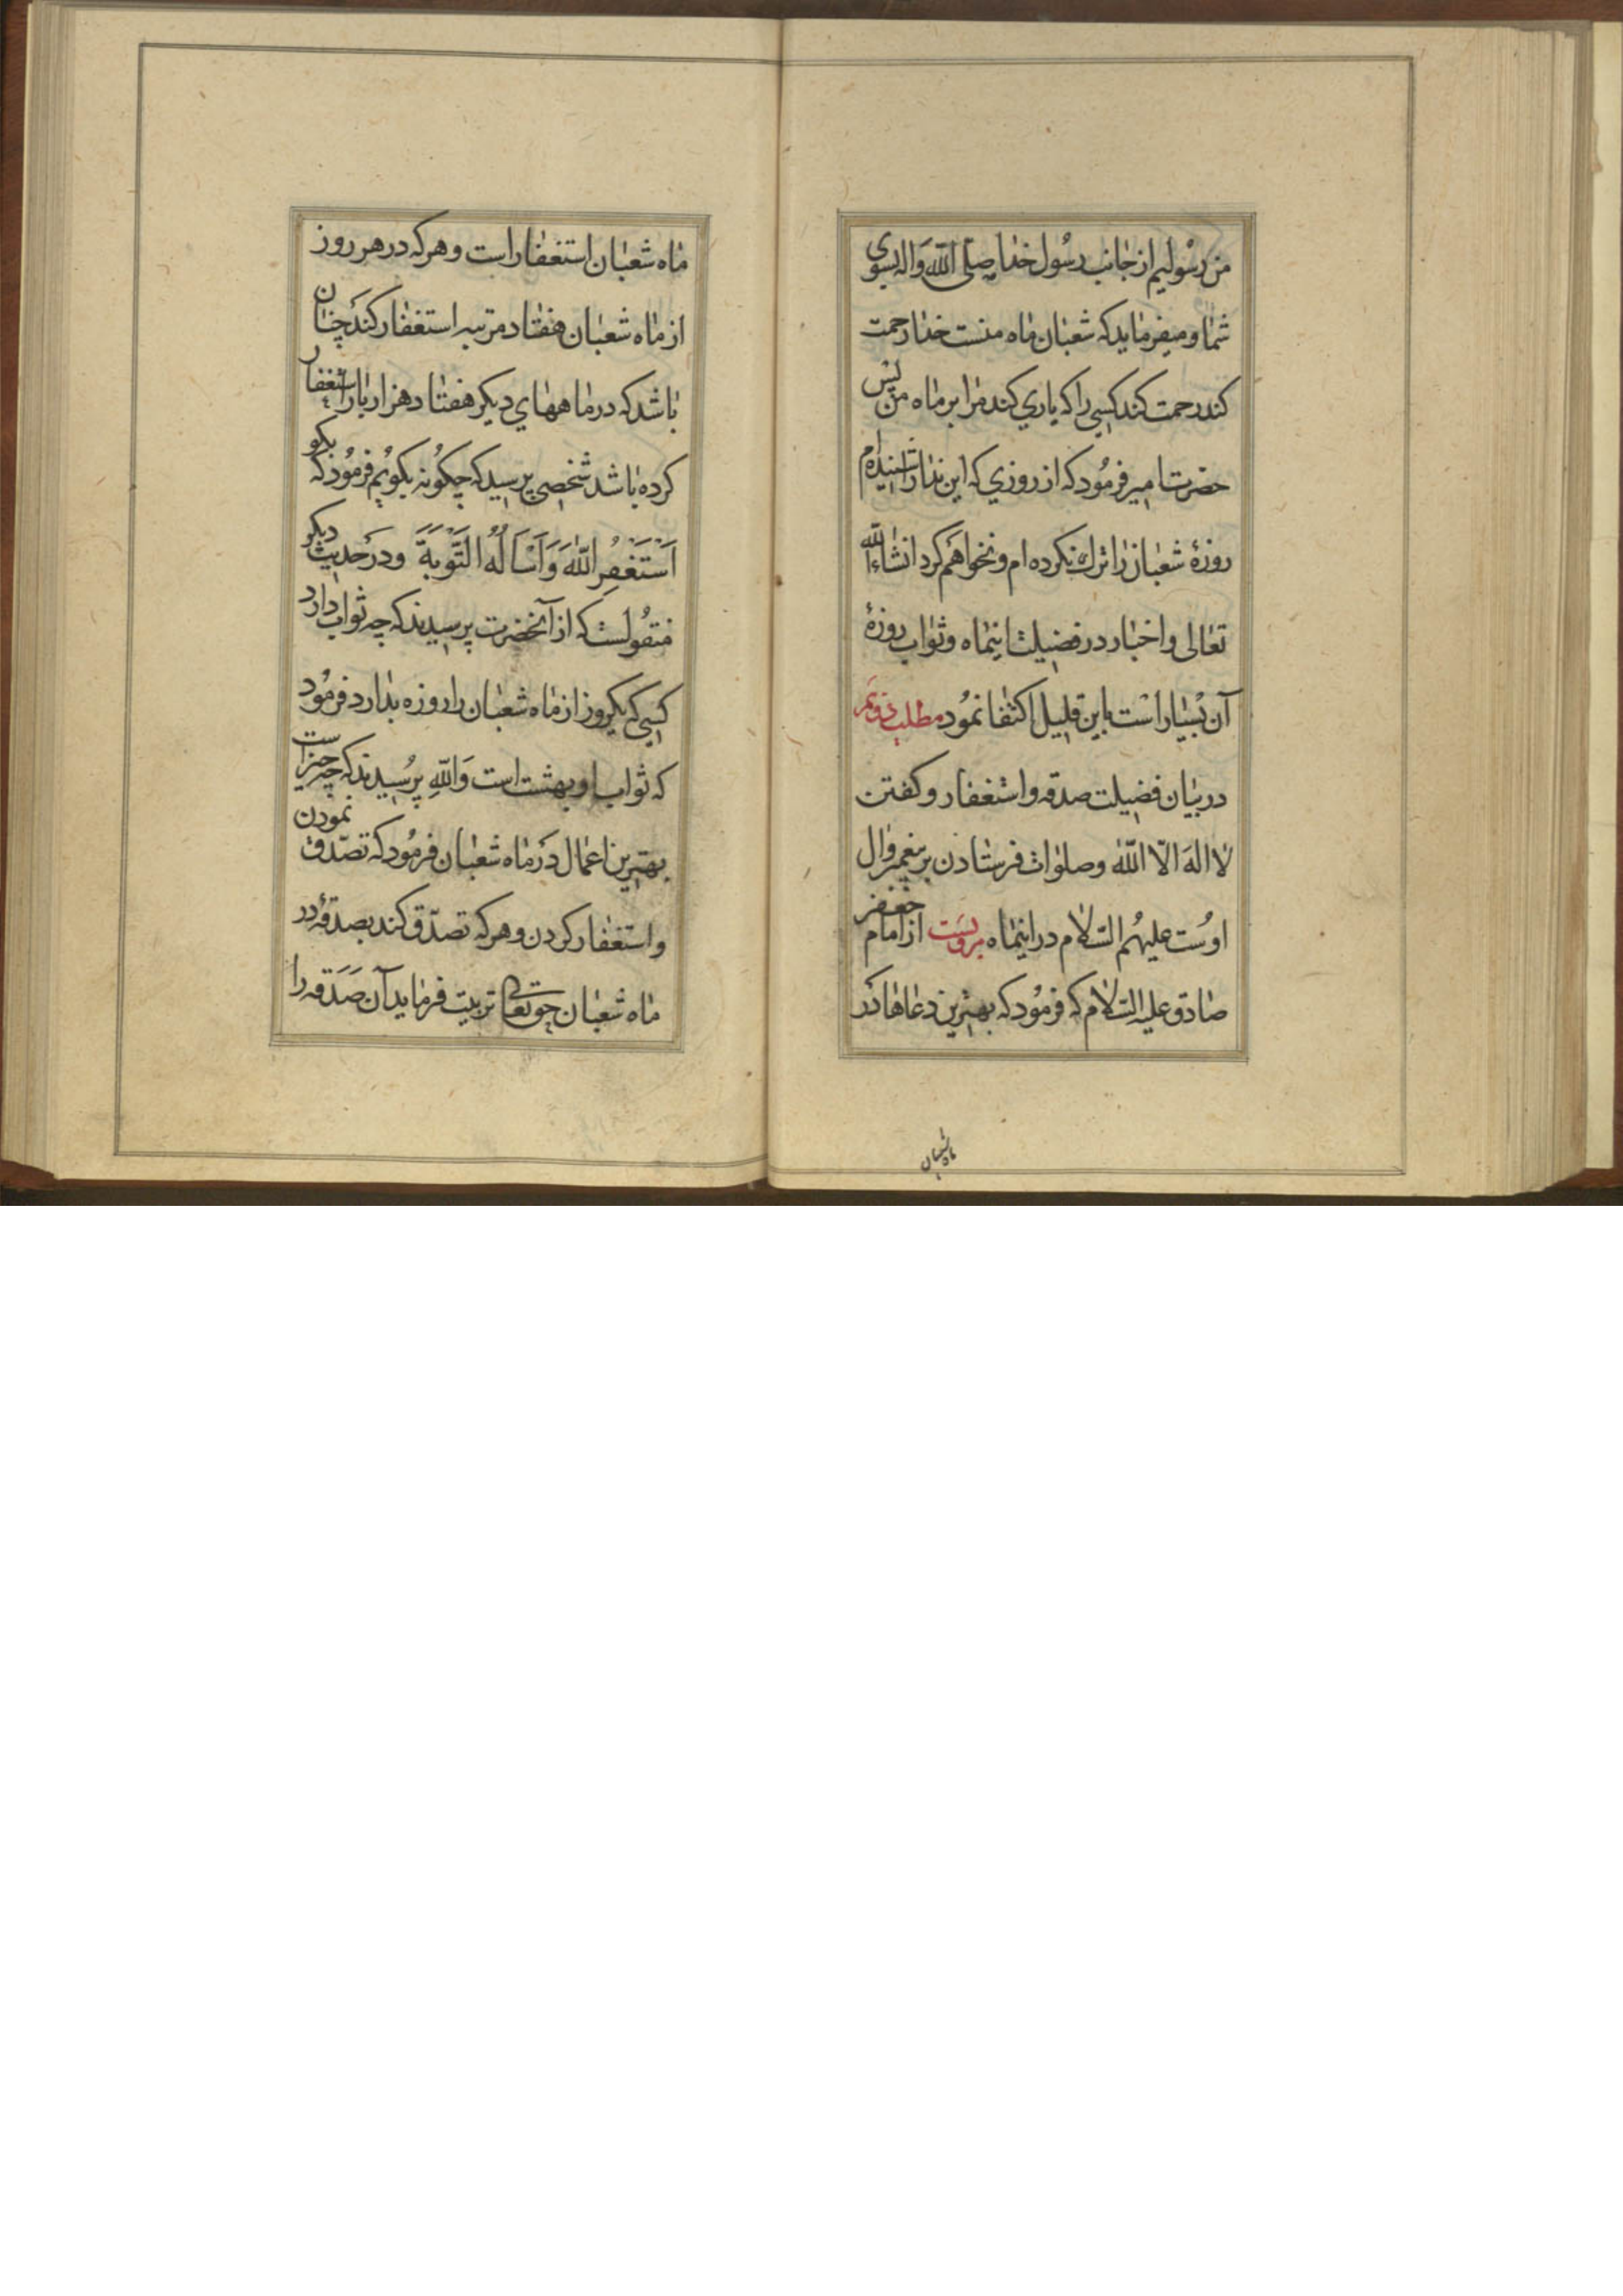 من رسولیم از جانب رسول خدا صلی الله و اله بسوی
شما و میفرماید که شعبان ماه منست خدا رحمت
کند رحمت کند کسی را که یاری کند مرا بر ماه من پس
حضرت امیر فرمود که از روزی که این ندا را شنیدم
روزهٔ شعبان را ترك نکرده ام و نخواهم کرد انشاء الله
تعالی و اخبار در فضیلت اینماه و ثواب روزهٔ
آن بسیار است باین قلیل اکتفا نمود مطلب دویم
در بیان فضیلت صدقه و استغفار و کفتن
لا اله الّا اللّه و صلوات فرستادن بر پیغمبر و ال
اوست علیهم السّلام در اینماه مرویست از امام جعفر
صادق علیه السّلام که فرمود که بهترین دعاها در
ماه شعبان
ماه شعبان استغفار است و هر که در هر روز
از ماه شعبان هفتاد مرتبه استغفار کند چنان
باشد که در ماههای دیکر هفتاد هزار بار استغفار
کرده باشد شخصی پرسید که چکونه بکویم فرمود که بکو
اَسْتَغْفِرُ اللّٰهَ وَ اَسْاَلُهُ التَّوْبَةَ و در حدیث دیکر
منقولست که از آنحضرت پرسیدند که چه ثواب دارد
کسی که یکروز از ماه شعبان را روزه بدارد فرمود
که ثواب او بهشت است وَاللّهِ پرسیدند که چه چیز است
بهترین اعمال در ماه شعبان فرمود که تصدّق نمودن
و استغفار کردن و هر که تصدّق کند بصدقهٔ در
ماه شعبان حق تعالی تربیت فرماید آن صَدَقه را